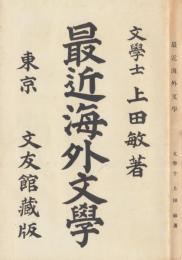 最近海外文學
文學士 上田敏著
文學士 上田敏著
最近海外文學
東京 文友館藏版